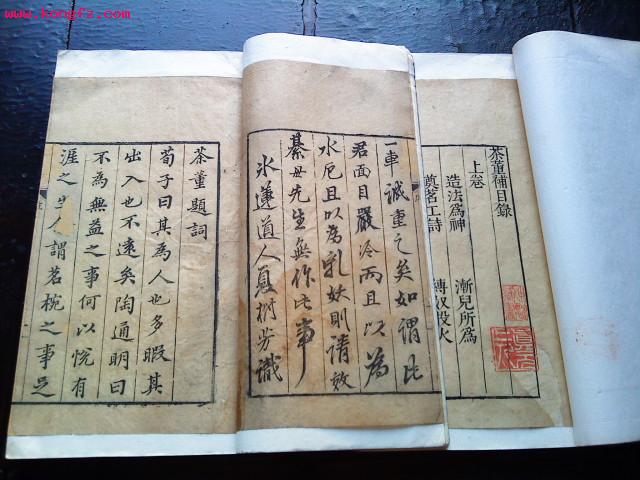 www.kongfz.com
茶董題詞
荀子曰其為人也多暇其
出入也不遠矣陶通明曰
不為無益之事何以悅有
涯之生人謂茗椀之事足
一車誠重之矣如謂此
君面目嚴冷而且以為
水厄且以為乳妖則請效
綦毋先生無作此事
冰蓮道人夏樹芳識
茶董補目錄
上卷
造法為神
漸兒所為
奠茗工詩
縛奴投火